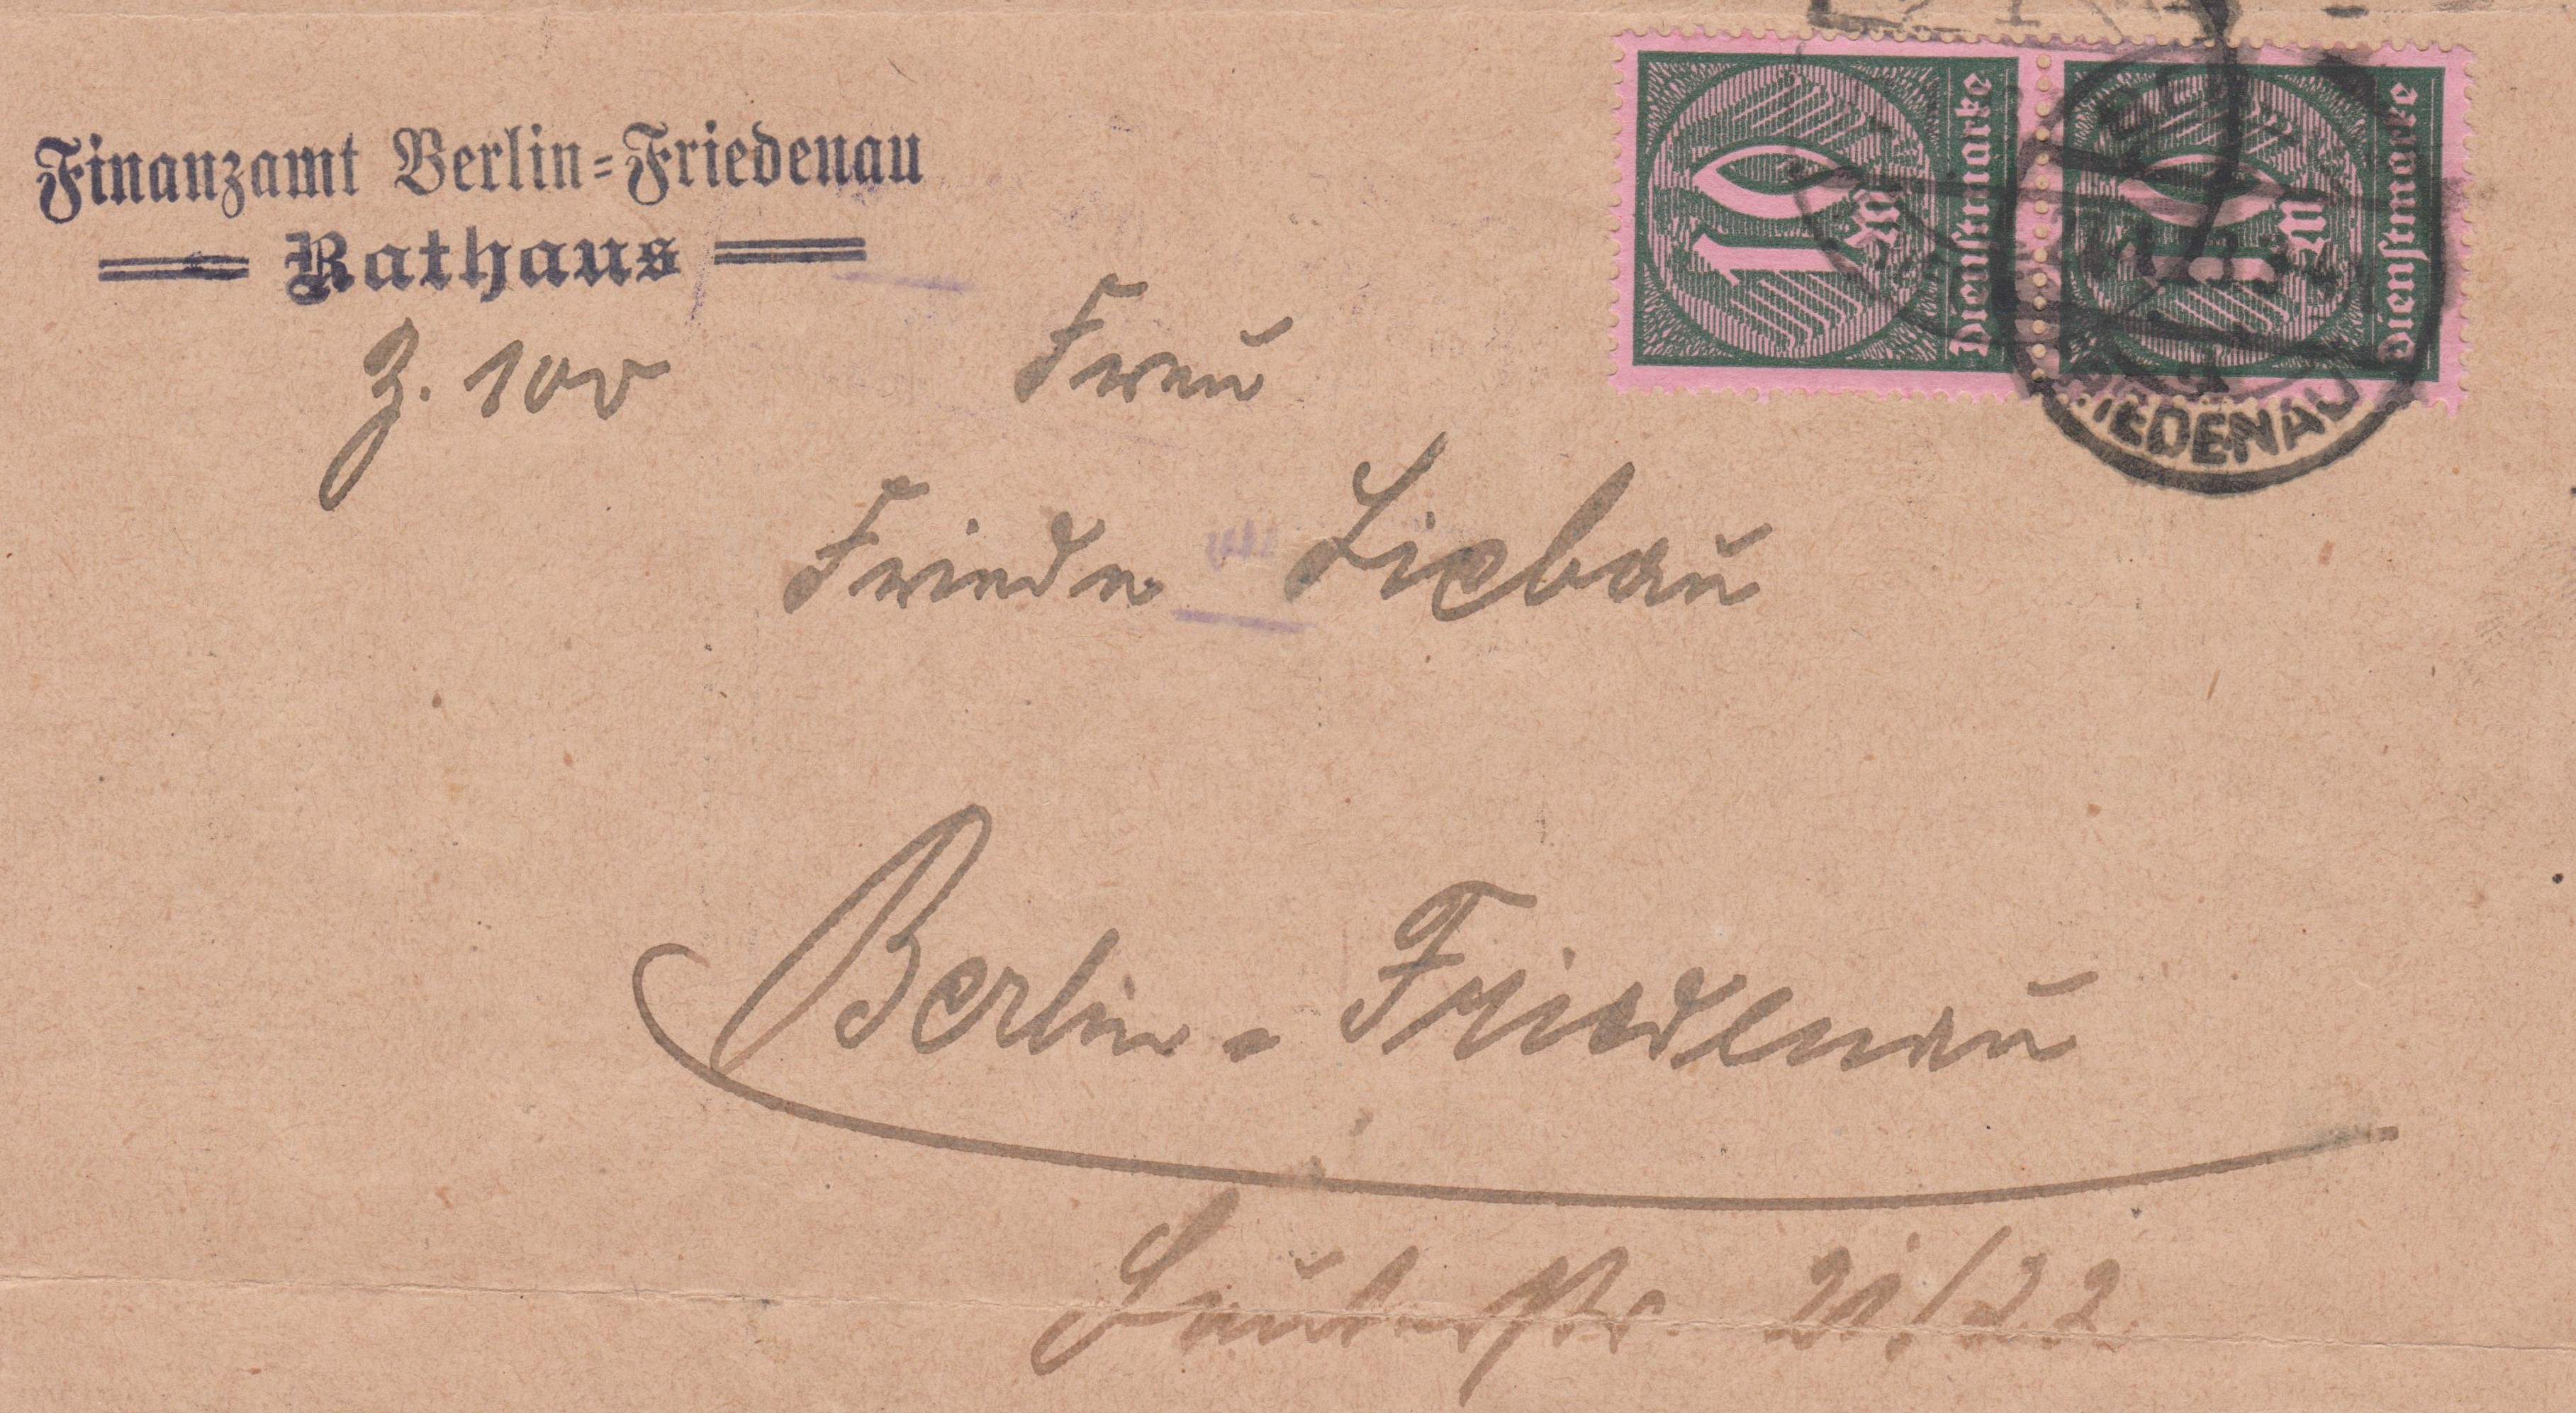 Finanzamt Berlin=Friedenau
Rathaus
10 M
Dienstmarke
10 M
Dienstmarke
FRIEDENAU
Z. 100
Frau
Frieda Liebau
Berlin - Friedenau
Lauterstr. 21/22